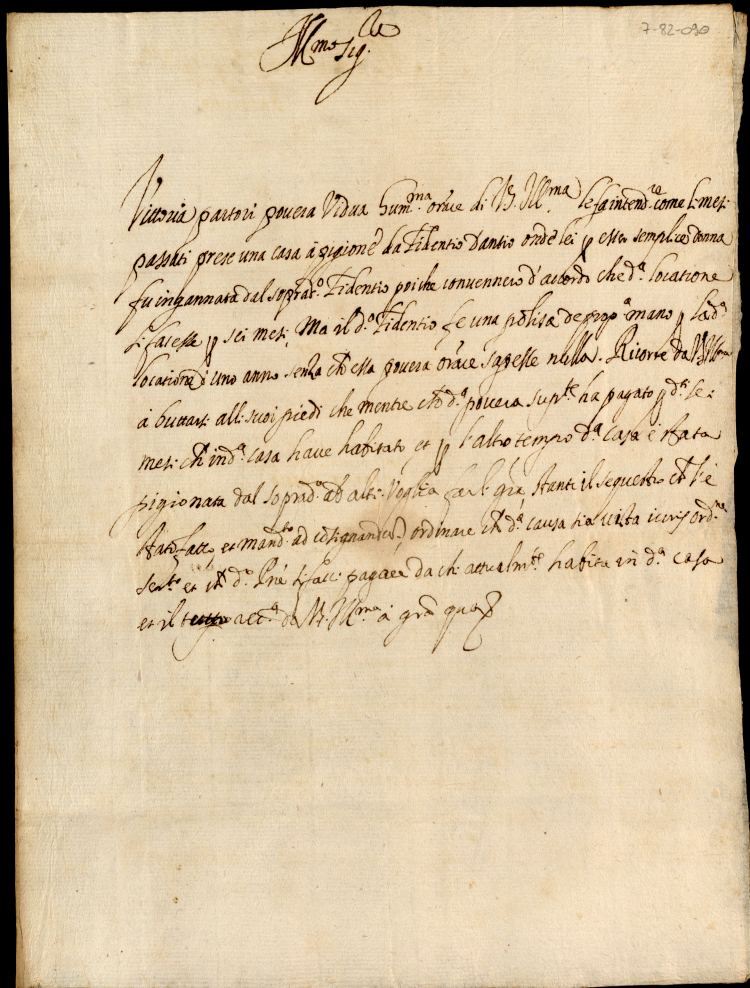 7-82-090
Ill.mo Sig.re
Vittoria Partori povera Vidua hum.ma orãce di V.S. Ill.ma le fa intend.re come li mesi
passati prese una casa à pigione da Fidentio Dantio onde lei p esser semplice donna
fu ingannata dal soprad.o Fidentio poiche convennero d'accordo che d.a locatione
si facesse p sei mesi, Ma il d.o Fidentio fe una polisa de prop.a mano p la d.a
locatione d'uno anno senza che essa povera orãce sapesse nulla. Ricorre da V.S. Ill.ma
à buttarsi alli suoi piedi che mentre che d.a povera supp.te ha pagato p d.i sei
mesi che in d.a casa have habitato et p l'altro tempo d.a casa è stata
pigionata dal soprad.o ad altri Voglia farli grã, stanti il sequestro che l'è
stato fatto et mand.to ad consignandum, ordinare che d.a causa sia vista iuris ord.ne
ser.to et che d.o si facci pagare da chi attualm.te habita in d.a casa
et il tutto a d. V.S. Ill.ma à grã quas